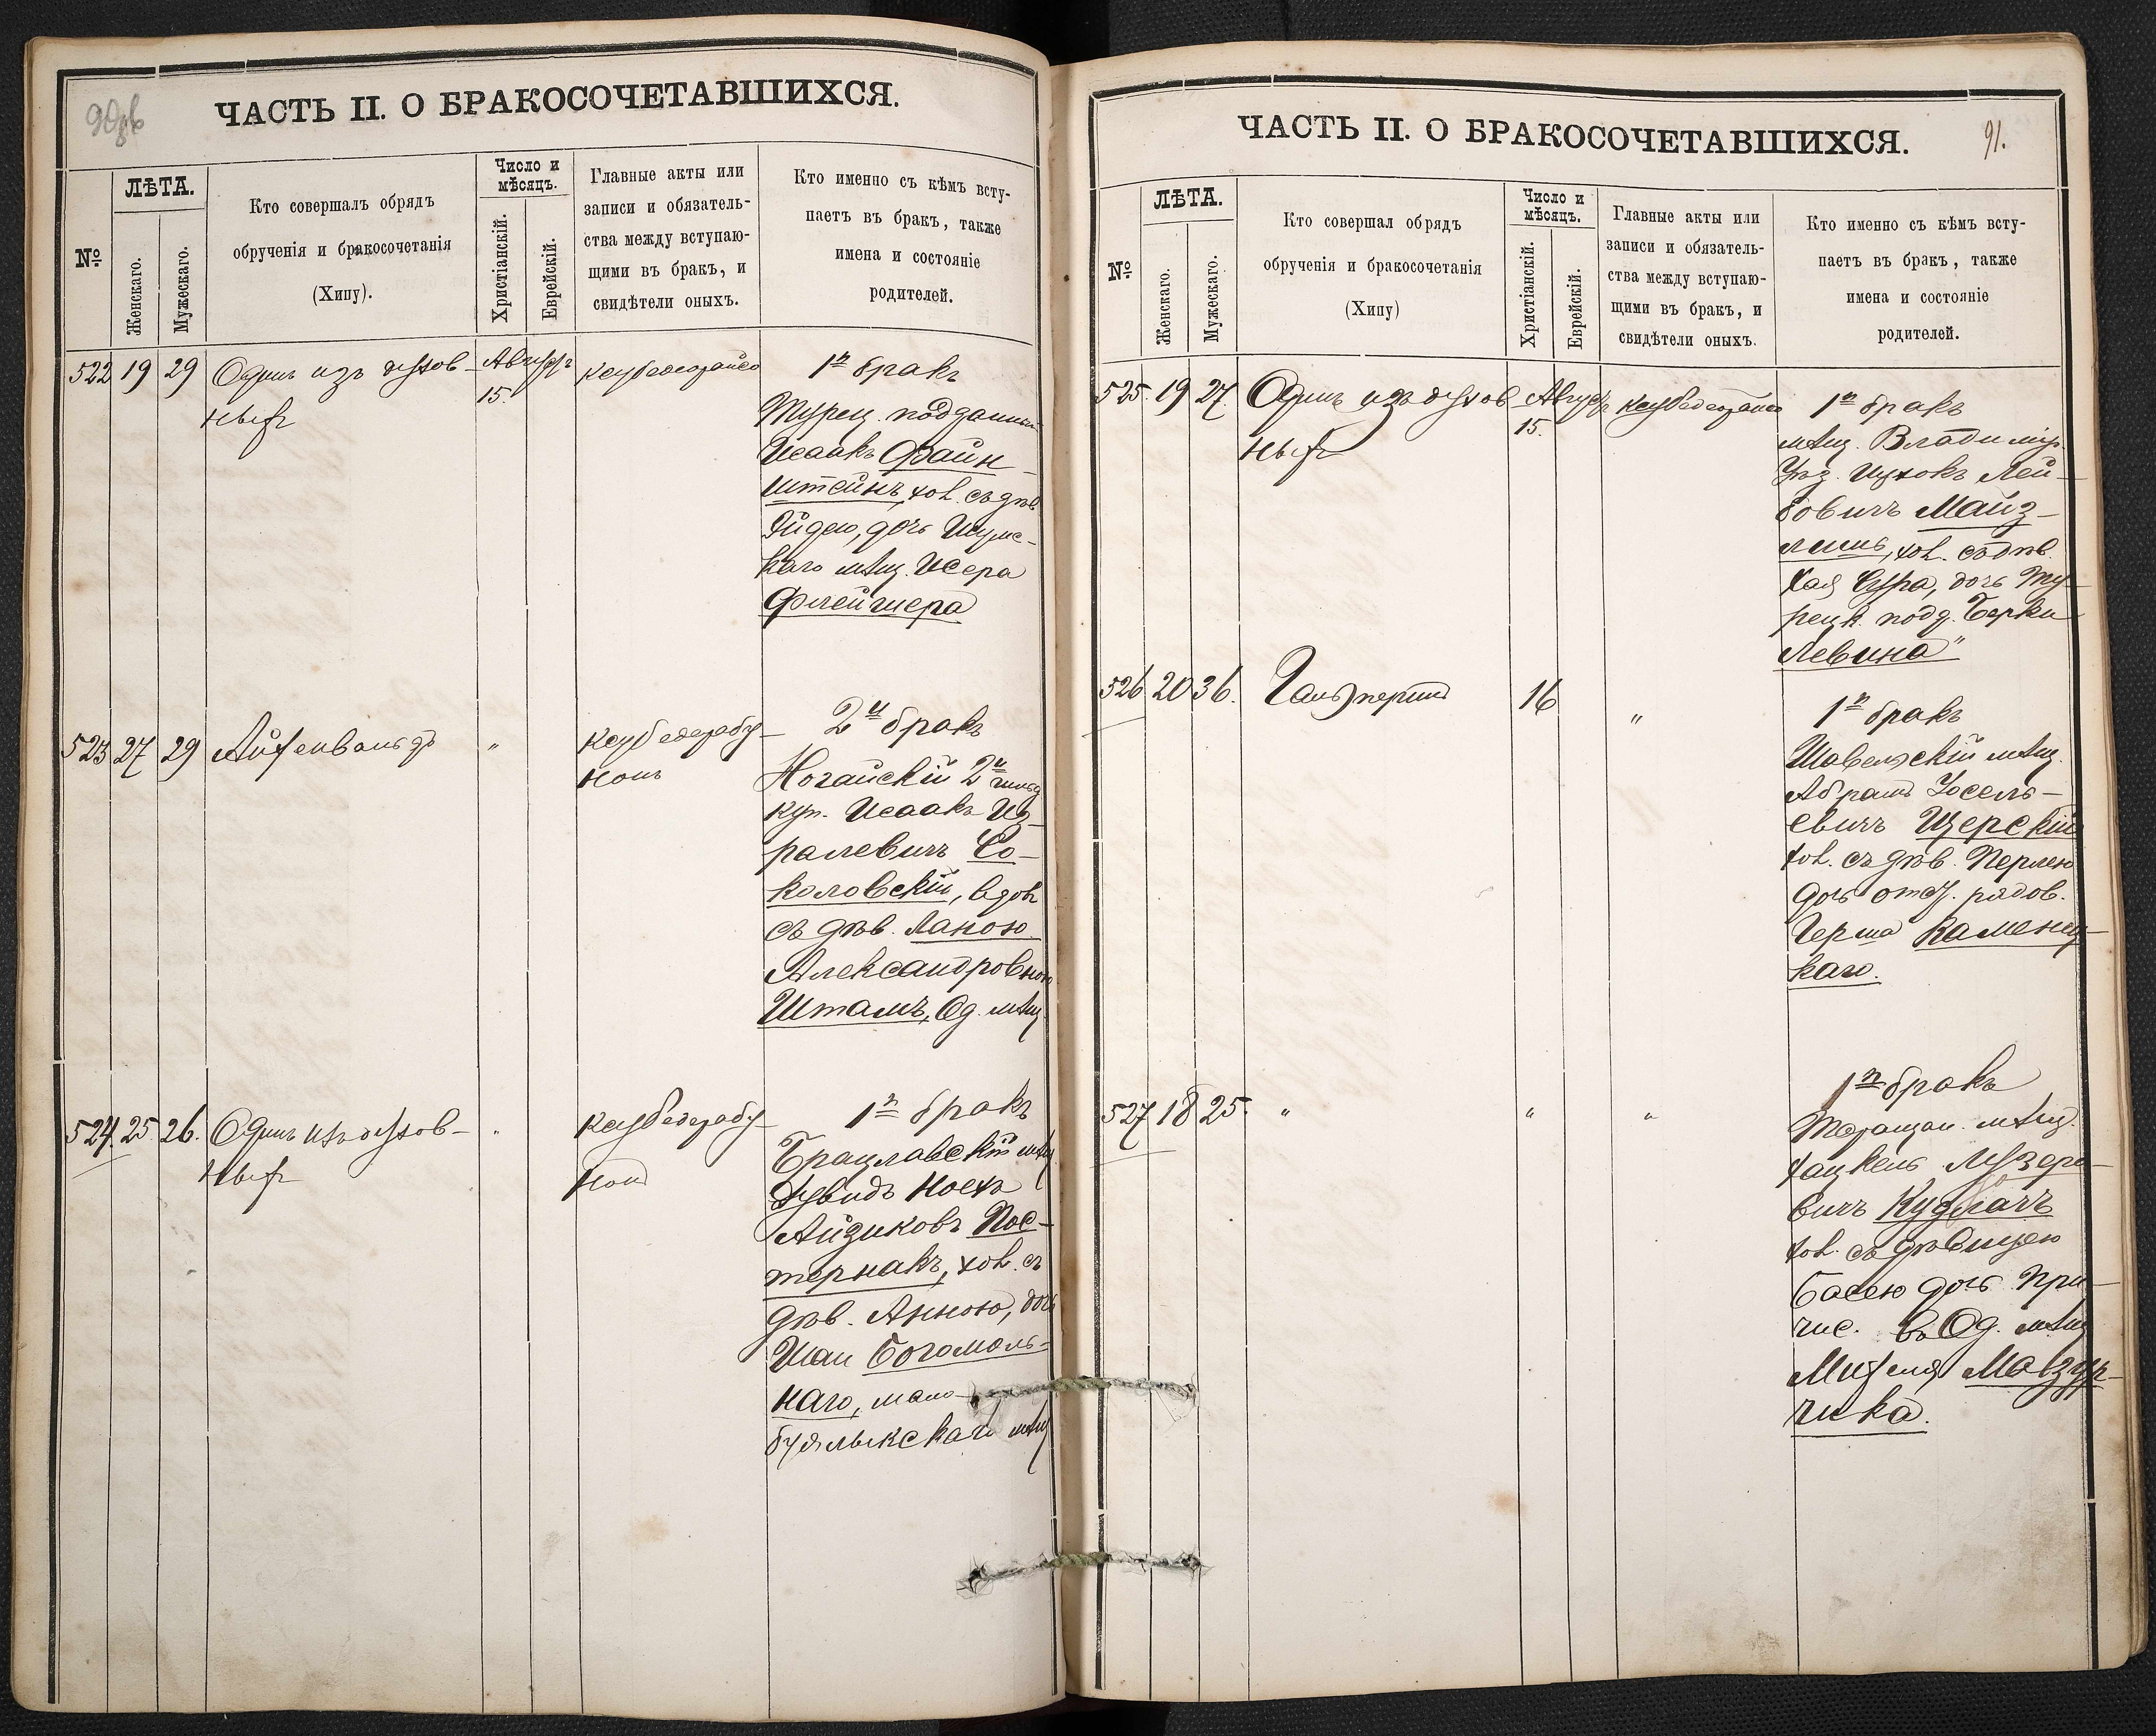 ЧАСТЬ II. О БРАКОСОЧЕТАВШИХСЯ.
№
ЛѢТА.
Женскаго.
Мужескаго.
Кто совершалъ обрядъ
обрученія и бракосочетанія
(Хипу).
Число и
мѣсяцъ.
Христіанскій.
Еврейскій.
Главные акты или
записи и обязатель-
ства между вступаю-
щими въ бракъ, и
свидѣтели оныхъ.
Кто именно съ кѣмъ всту-
паетъ въ бракъ, также
имена и состояніе
родителей.
522 19 29 Одинъ изъ духов-
ныхъ
Августъ
15.
1й бракъ
Турец. подданный
Исаакъ Файн-
штейнъ, хол. съ дѣв.
Эйдею, дочь Шумс-
каго мѣщ. Исера
Флейшера
523 27 29 Айхенвальдъ "
2й бракъ
Ногайскій 2й гильд.
куп. Исаакъ Из-
ралевичъ Со-
коловскій, вдов.
съ дѣв. Ланою
Александровною
Штамъ, Од. мѣщ.
524. 25. 26. Одинъ изъ духов-
ныхъ
"
1й бракъ
Брацлавскій мѣщ.
Дувидъ Ноехъ
Айзиковъ Пас-
тернакъ, хол. съ
дѣв. Анною, дочь
Шаи Богомоль-
наго, мало-
буялыкскаго мѣщ.
ЧАСТЬ II. О БРАКОСОЧЕТАВШИХСЯ.
91.
№
ЛѢТА.
Женскаго.
Мужескаго.
Кто совершал обрядъ
обрученія и бракосочетанія
(Хипу)
Число и
мѣсяцъ.
Христіанскій.
Еврейскій.
Главные акты или
записи и обязатель-
ства между вступаю-
щими въ бракъ, и
свидѣтели оныхъ.
Кто именно съ кѣмъ всту-
паетъ въ бракъ, также
имена и состояніе
родителей.
525. 19 27. Одинъ изъ духов-
ныхъ
Августъ
15.
1й бракъ
мѣщ. Владимір.
Уѣз. Ицхокъ Лей-
бовичъ Майз-
лишъ, хол. съ дѣв.
Хая Сура, дочь Ту-
рецк. подд. Берки
Левина"
526 20 36. Гальперинъ 16 "
1й бракъ
Шавельскій мѣщ.
Абрамъ Іосель-
евичъ Церскій
хол. съ дѣв. Перлею
дочь отст. рядов.
Герша Каменец-
каго.
527 18 25. " " "
1й бракъ
Таращан. мѣщ.
Хацкель Лузеро-
вичъ Кудлачъ
хол. съ дѣвицею
Басею дочь при-
чис. въ Од. мѣщ.
Михеля Мазур-
чика.